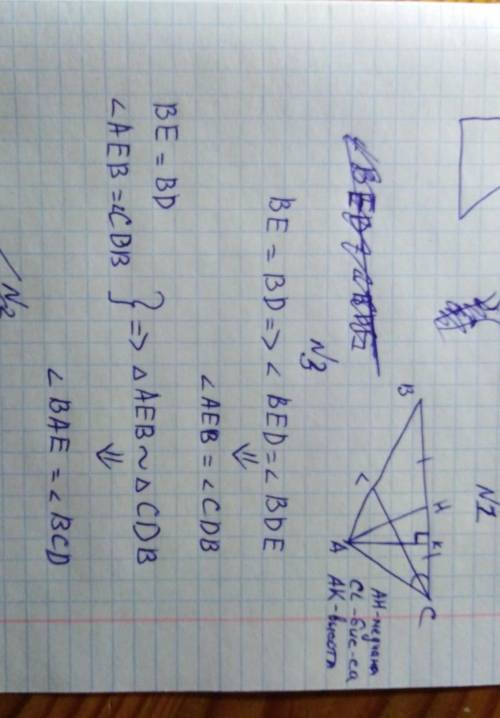 N1
B
H
K
C
L
A
AH-медиана
CL-бис-са
AK-высота
N3
BE = BD => ∠BED = ∠BDE
⇓
∠AEB = ∠CDB
BE = BD
∠AEB = ∠CDB } => △AEB ~ △CDB
⇓
∠BAE = ∠BCD
N2